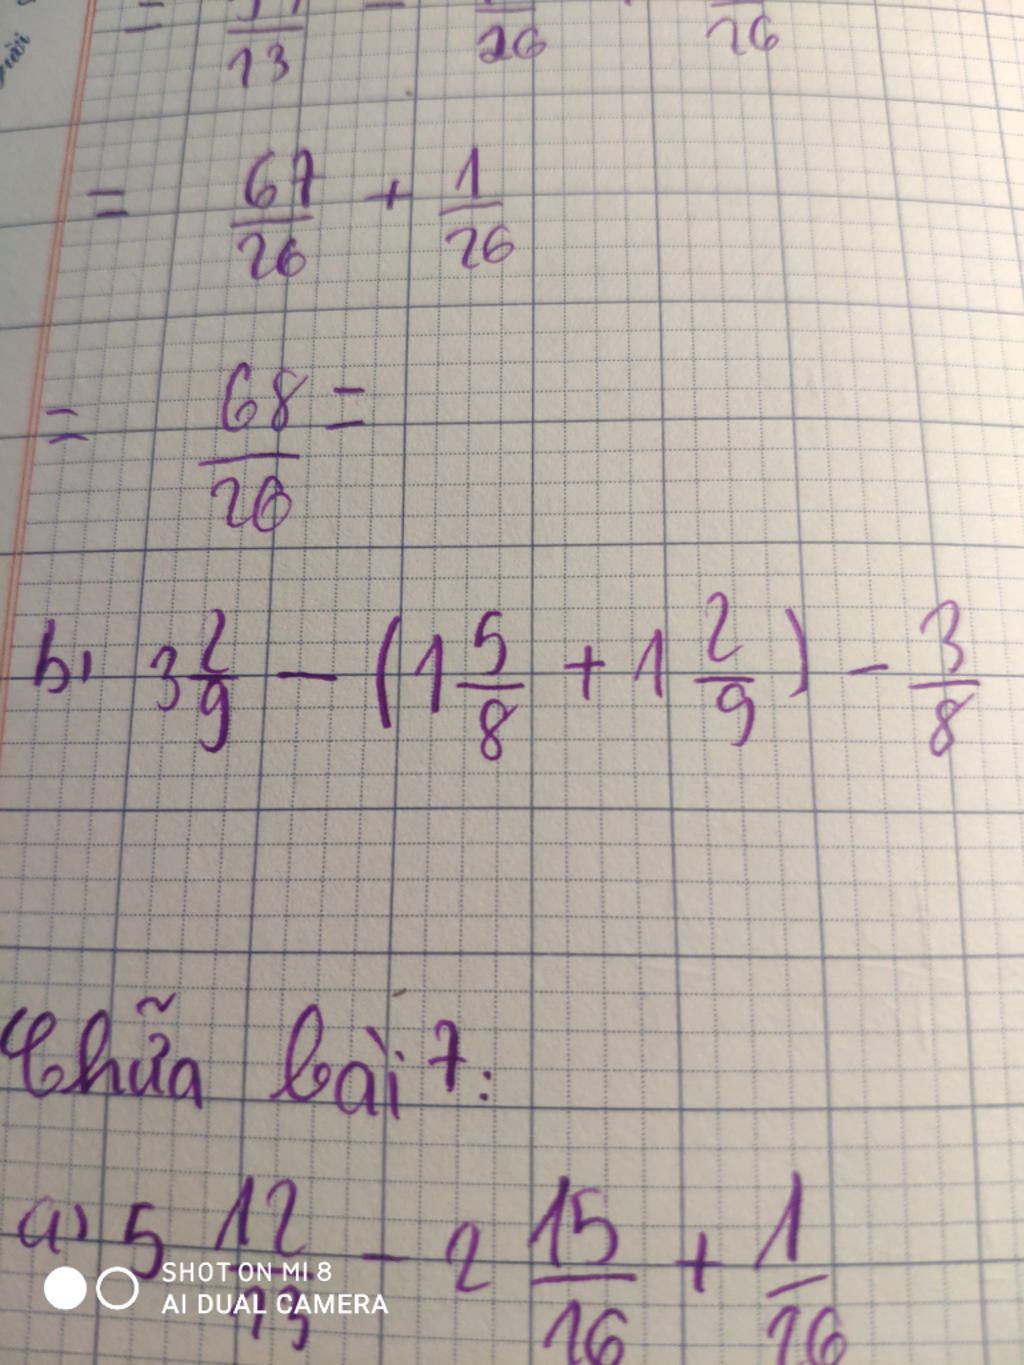 = /13 - /26 /26
= 67/26 + 1/26
= 68/26 =
b) 3 2/9 - (1 5/8 + 1 2/9) - 3/8
Chữa bài 7:
a) 5 12/13 - 2 15/26 + 1/26
SHOT ON MI 8
AI DUAL CAMERA